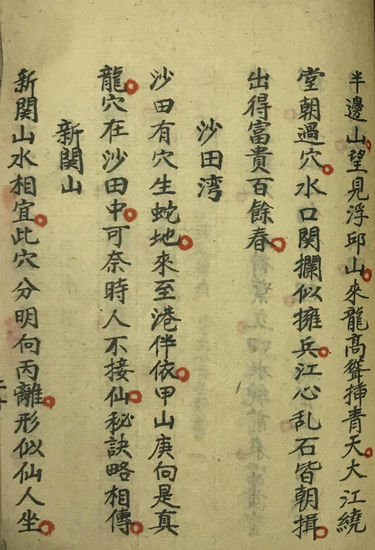 半邊山望見浮邱山來龍高聳揷青天大江繞
堂朝過穴水口関攔似擁兵江心乱石皆朝揖
出得富貴百餘春
沙田湾
沙田有穴生蛇地來至港伴依甲山庚向是真
龍穴在沙田中可奈時人不接仙秘訣略相傳
新関山
新関山水相宜此穴分明向丙離形似仙人坐